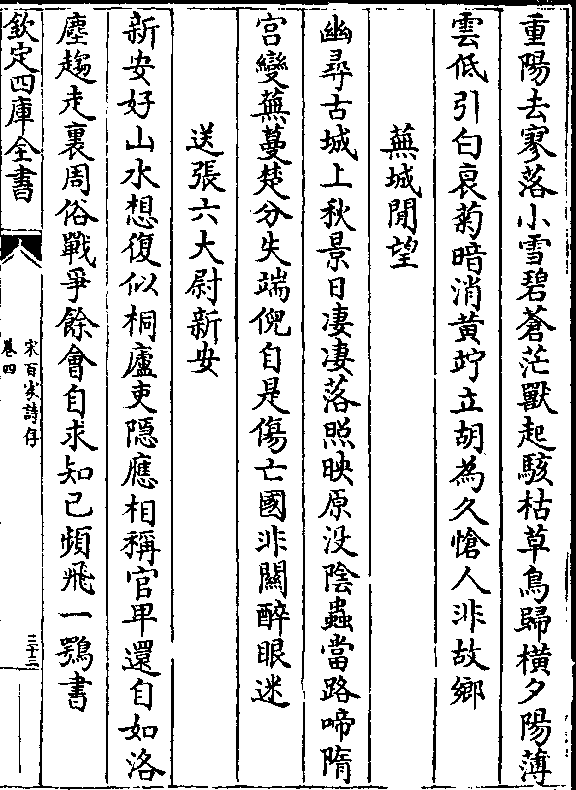 重陽去寥落小雪碧蒼茫獸起駭枯草鳥歸橫夕陽薄
雲低引白哀菊暗消黄竚立胡為久愴人非故鄉
蕪城閒望
幽尋古城上秋景日凄凄落照映原没陰蟲當路啼隋
宫變蕪蔓楚分失端倪自是傷亡國非關醉眼迷
送張六大尉新安
新安好山水想復似桐廬吏隠應相稱官卑還自如洛
塵趨走裏周俗戰爭餘會自求知己頻飛一鶚書
欽定四庫全書
宋百家詩存
卷四
三十二